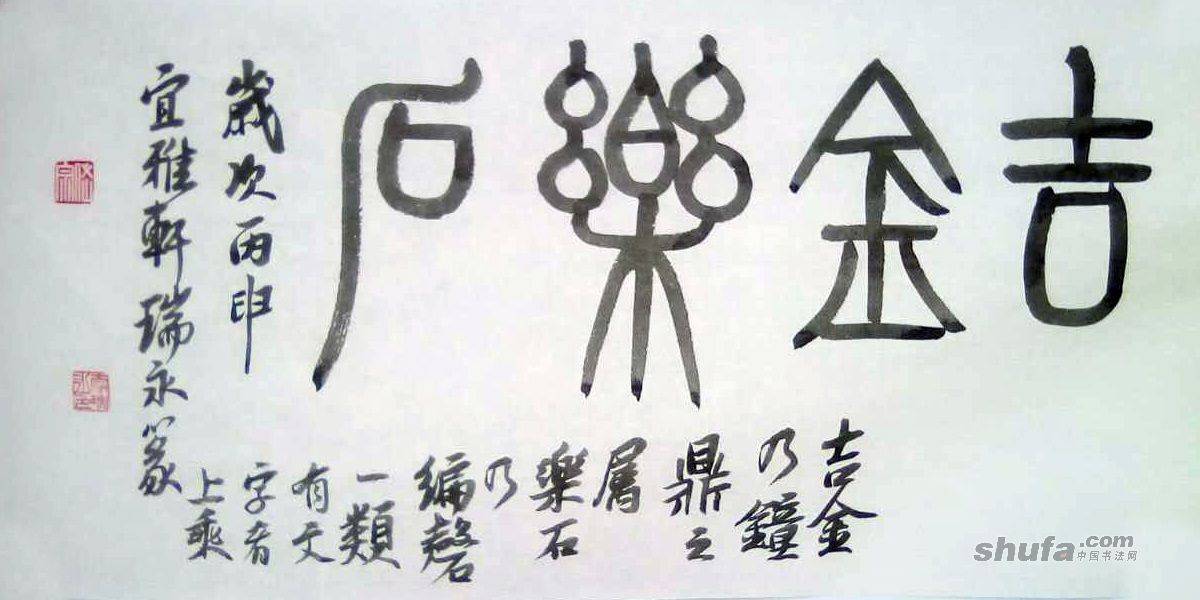 吉金樂石
吉金
乃鐘
鼎之
属
樂石
乃
編磬
一類
有文
字者
上乘
歲次丙申
宜雅軒瑞永篆
shufa.com
中国书法网